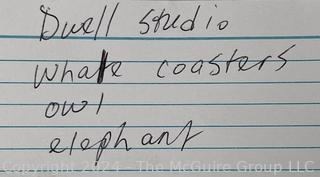 Dwell studio
whale coasters
owl
elephant
Copyright 2024 - The McGuire Group LLC